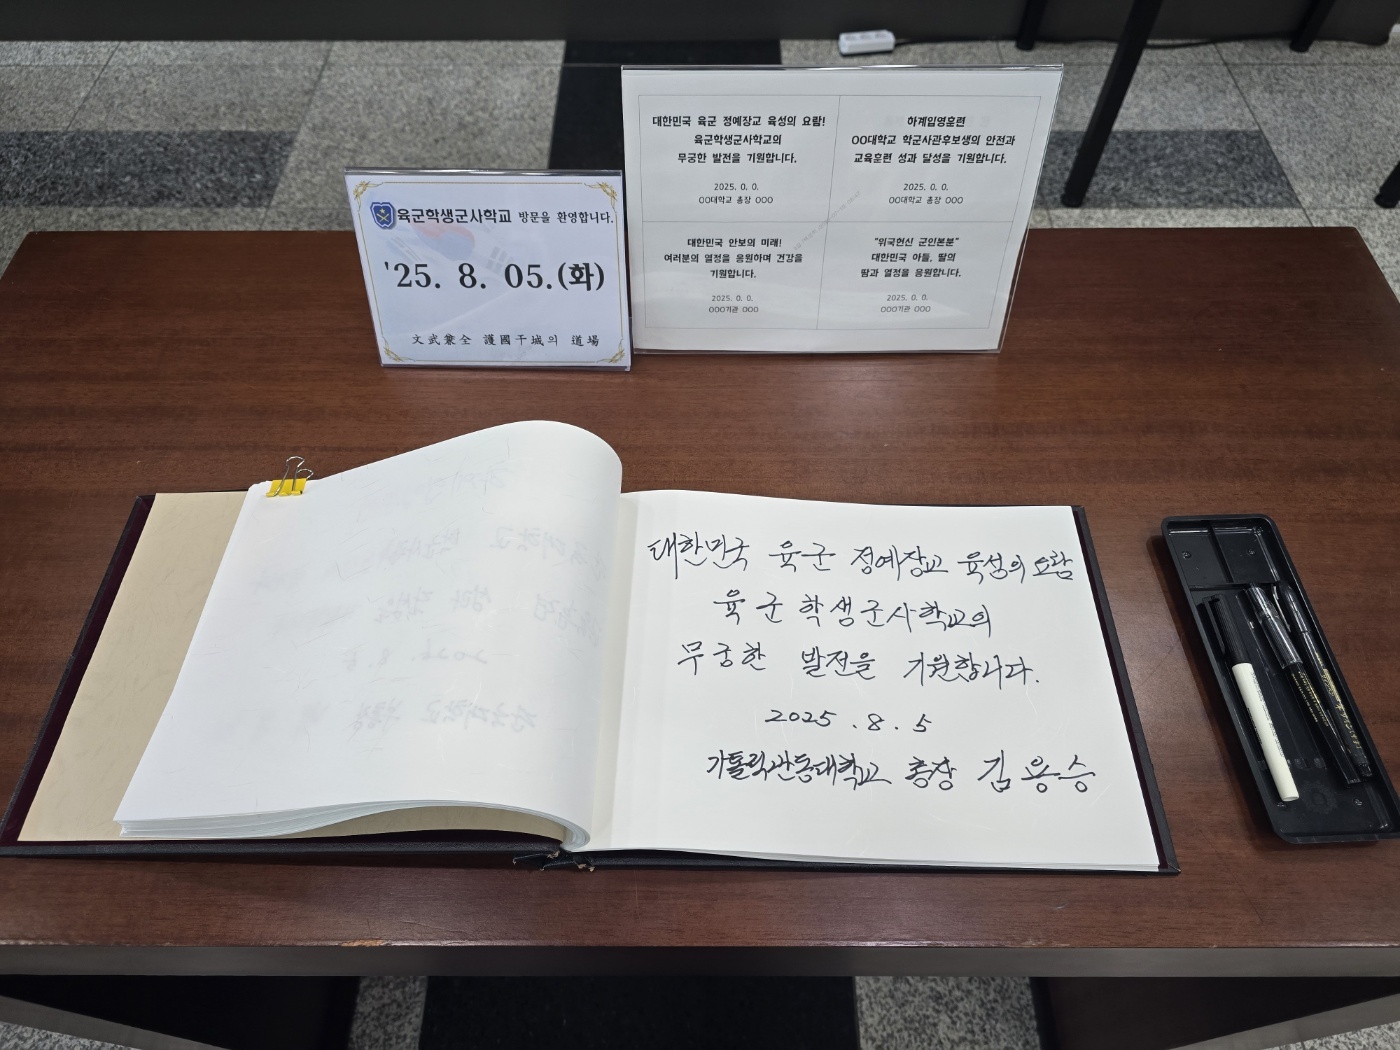 육군학생군사학교 방문을 환영합니다.
'25. 8. 05.(화)
文武兼全 護國干城의 道場
대한민국 육군 정예장교 육성의 요람!
육군학생군사학교의
무궁한 발전을 기원합니다.
2025. 0. 0.
OO대학교 총장 OOO
하계입영훈련
OO대학교 학군사관후보생의 안전과
교육훈련 성과 달성을 기원합니다.
2025. 0. 0.
OO대학교 총장 OOO
대한민국 안보의 미래!
여러분의 열정을 응원하며 건강을
기원합니다.
2025. 0. 0.
OOO기관 OOO
"위국헌신 군인본분"
대한민국 아들, 딸의
땀과 열정을 응원합니다.
2025. 0. 0.
OOO기관 OOO
대한민국 육군 정예장교 육성의 요람
육군학생군사학교의
무궁한 발전을 기원합니다.
2025 . 8 . 5
가톨릭관동대학교 총장 김용승